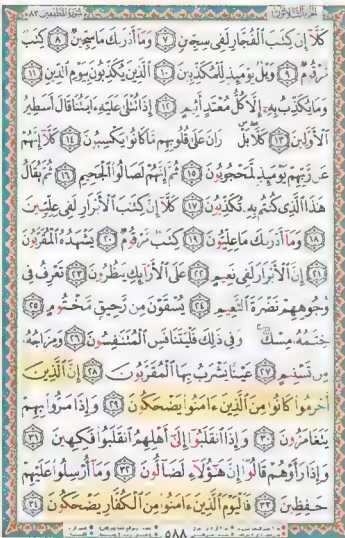 الجزء الثلاثون سورة المطففين ٨٣
كَلَّآ إِنَّ كِتَٰبَ ٱلْفُجَّارِ لَفِى سِجِّينٍ ٧ وَمَآ أَدْرَىٰكَ مَا سِجِّينٌ ٨ كِتَٰبٌ
مَّرْقُومٌ ٩ وَيْلٌ يَوْمَئِذٍ لِّلْمُكَذِّبِينَ ١٠ ٱلَّذِينَ يُكَذِّبُونَ بِيَوْمِ ٱلدِّينِ ١١
وَمَا يُكَذِّبُ بِهِۦٓ إِلَّا كُلُّ مُعْتَدٍ أَثِيمٍ ١٢ إِذَا تُتْلَىٰ عَلَيْهِ ءَايَٰتُنَا قَالَ أَسَٰطِيرُ
ٱلْأَوَّلِينَ ١٣ كَلَّا بَلْ رَانَ عَلَىٰ قُلُوبِهِم مَّا كَانُوا۟ يَكْسِبُونَ ١٤ كَلَّآ إِنَّهُمْ
عَن رَّبِّهِمْ يَوْمَئِذٍ لَّمَحْجُوبُونَ ١٥ ثُمَّ إِنَّهُمْ لَصَالُوا۟ ٱلْجَحِيمِ ١٦ ثُمَّ يُقَالُ
هَٰذَا ٱلَّذِى كُنتُم بِهِۦ تُكَذِّبُونَ ١٧ كَلَّآ إِنَّ كِتَٰبَ ٱلْأَبْرَارِ لَفِى عِلِّيِّينَ
١٨ وَمَآ أَدْرَىٰكَ مَا عِلِّيُّونَ ١٩ كِتَٰبٌ مَّرْقُومٌ ٢٠ يَشْهَدُهُ ٱلْمُقَرَّبُونَ
٢١ إِنَّ ٱلْأَبْرَارَ لَفِى نَعِيمٍ ٢٢ عَلَى ٱلْأَرَآئِكِ يَنظُرُونَ ٢٣ تَعْرِفُ فِى
وُجُوهِهِمْ نَضْرَةَ ٱلنَّعِيمِ ٢٤ يُسْقَوْنَ مِن رَّحِيقٍ مَّخْتُومٍ ٢٥
خِتَٰمُهُۥ مِسْكٌ وَفِى ذَٰلِكَ فَلْيَتَنَافَسِ ٱلْمُتَنَٰفِسُونَ ٢٦ وَمِزَاجُهُۥ
مِن تَسْنِيمٍ ٢٧ عَيْنًا يَشْرَبُ بِهَا ٱلْمُقَرَّبُونَ ٢٨ إِنَّ ٱلَّذِينَ
أَجْرَمُوا۟ كَانُوا۟ مِنَ ٱلَّذِينَ ءَامَنُوا۟ يَضْحَكُونَ ٢٩ وَإِذَا مَرُّوا۟ بِهِمْ
يَتَغَامَزُونَ ٣٠ وَإِذَا ٱنقَلَبُوٓا۟ إِلَىٰٓ أَهْلِهِمُ ٱنقَلَبُوا۟ فَكِهِينَ ٣١
وَإِذَا رَأَوْهُمْ قَالُوٓا۟ إِنَّ هَٰٓؤُلَآءِ لَضَآلُّونَ ٣٢ وَمَآ أُرْسِلُوا۟ عَلَيْهِمْ
حَٰفِظِينَ ٣٣ فَٱلْيَوْمَ ٱلَّذِينَ ءَامَنُوا۟ مِنَ ٱلْكُفَّارِ يَضْحَكُونَ ٣٤
٥٨٨